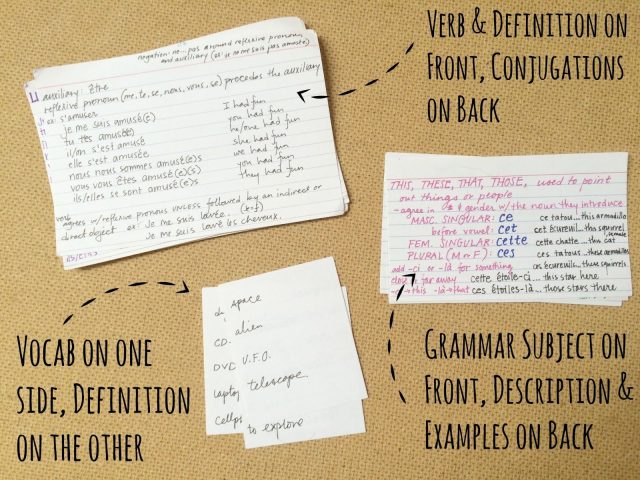 Verb & Definition on
Front, Conjugations
on Back
negation: ne...pas around reflexive pronoun,
and auxiliary (ex: je ne me suis pas amusée)
auxiliary: être
reflexive pronoun (me, te, se, nous, vous, se) precedes the auxiliary
ex s'amuser
je me suis amusé(e) I had fun
tu t'es amusé(e) you had fun
il/on s'est amusé he/one had fun
elle s'est amusée she had fun
nous nous sommes amusé(e)s we had fun
vous vous êtes amusé(e)(s) you had fun
ils/elles se sont amusé(e)s they had fun
verb agrees w/reflexive pronoun UNLESS followed by an indirect or
direct object ex: Je me suis lavée.
Je me suis lavé les cheveux.
THIS, THESE, THAT, THOSE, used to point
out things or people
-agree in # & gender w/ the noun they introduce
MASC. SINGULAR: ce ce tatou...this armadillo
before vowel: cet cet écureuil...this squirrel
FEM. SINGULAR: cette cette chatte...this cat
PLURAL (M or F): ces ces tatous...those armadillos
add -ci or -là for something ces écureuils...these squirrels
far away cette étoile-ci...this star here
this -là→that ces étoiles-là...those stars there
space
CD alien
DVD U.F.O.
laptop telescope
cellph to explore
Vocab on one
side, Definition
on the other
Grammar Subject on
Front, Description &
Examples on Back